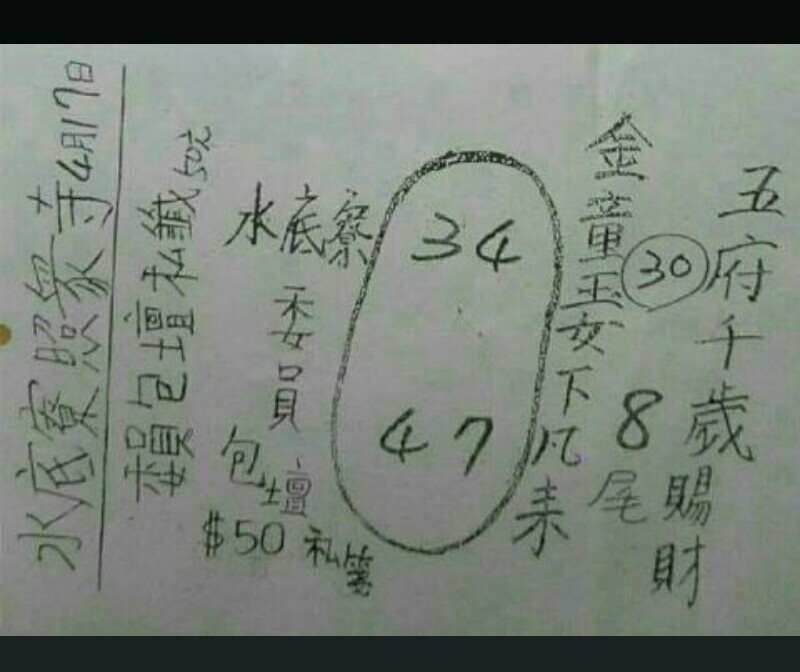 五府千歲賜財
30
8尾
金童玉女下凡來
34
47
水底寮
委員
包壇
$50 私簽
賴包壇私籤50元
水底寮照眾寺4月17日